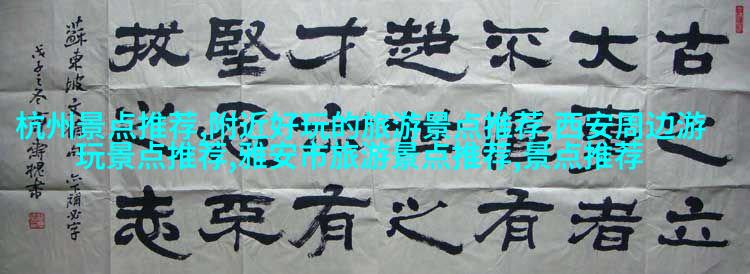 杭州景点推荐,附近好玩的旅游景点推荐,西安周边游
玩景点推荐,雅安市旅游景点推荐,景点推荐
古之立
大者
不有
超之
才有
堅不
拔之志
蘇東坡文漏必字
戊子之冬書